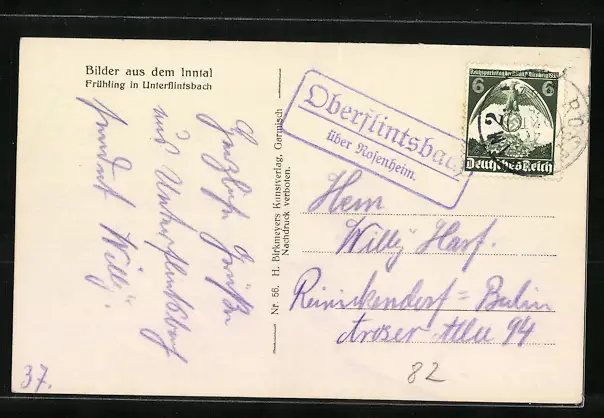 Bilder aus dem Inntal
Frühling in Unterflintsbach
Herzliche Grüße
aus Unterflintsbach
sendet Willy.
37.
Nr. 56. H. Birkmeyers Kunstverlag, Garmisch
Nachdruck verboten.
Oberflintsbach
über Rosenheim.
Reichsparteitag der NSDAP Nürnberg 1935
6 6
Deutsches Reich
Herrn
Willy Harf.
Reinickendorf=Berlin
Aroser Allee 94
82